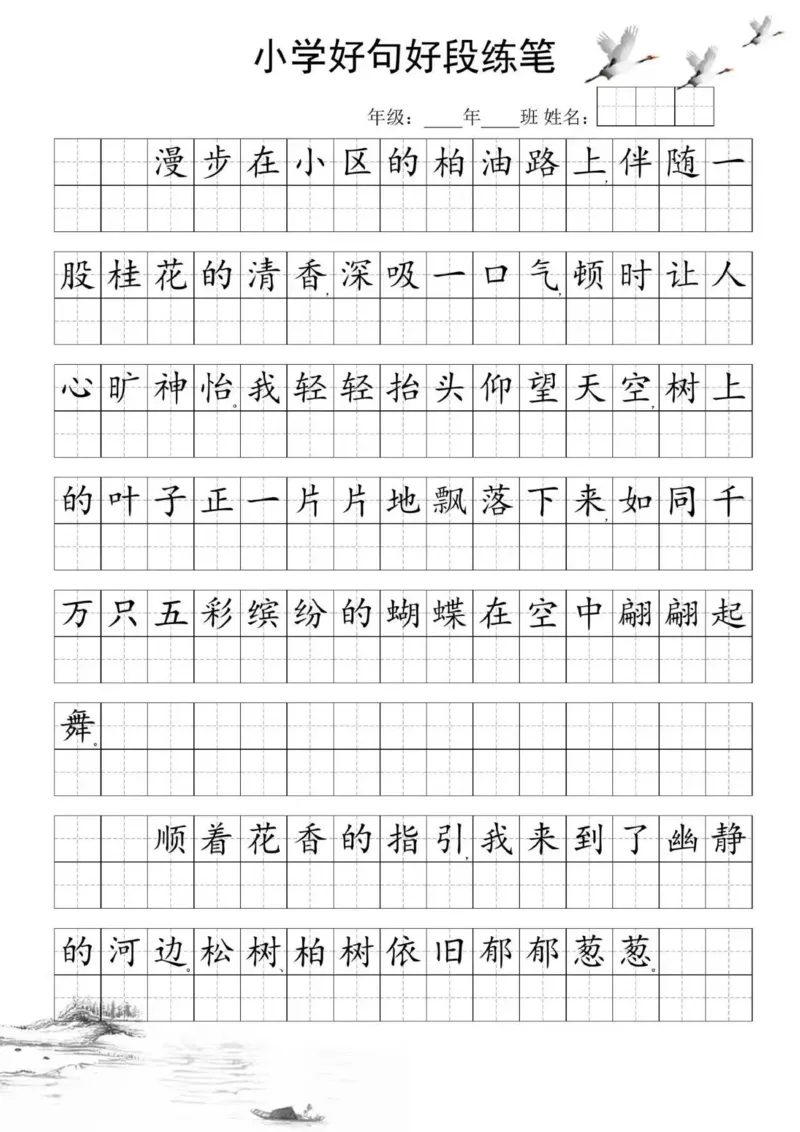 小学好句好段练笔
年级：____年____班 姓名：
漫步在小区的柏油路上,伴随一
股桂花的清香,深吸一口气,顿时让人
心旷神怡。我轻轻抬头仰望天空,树上
的叶子正一片片地飘落下来,如同千
万只五彩缤纷的蝴蝶在空中翩翩起
舞。
顺着花香的指引,我来到了幽静
的河边。松树、柏树依旧郁郁葱葱。